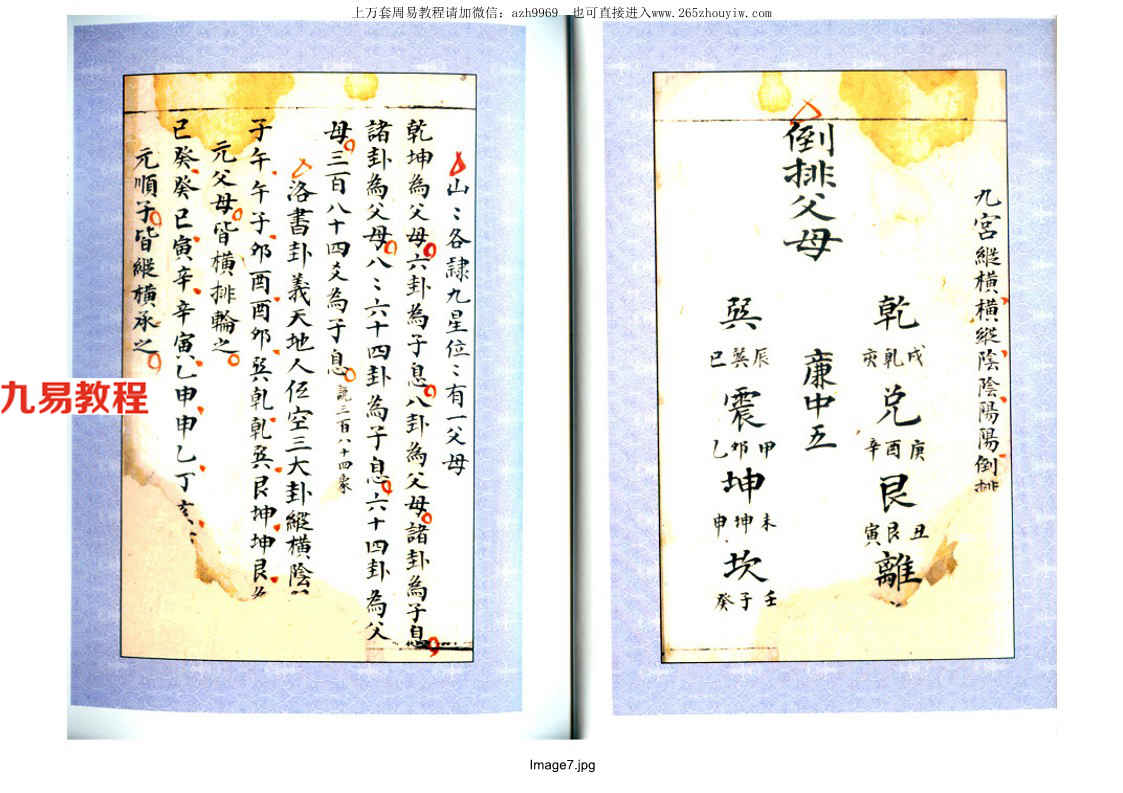 上万套周易教程请加微信：azh9969 也可直接进入www.265zhouyiw.com
九宮縱橫橫縱陰陰陽陽倒排
乾
戌乾亥
兌
庚酉辛
艮
丑艮寅
離
廉中五
巽
辰巽巳
震
甲卯乙
坤
未坤申
坎
壬子癸
倒排父母
山〻各隸九星位〻有一父母
乾坤為父母六卦為子息八卦為父母諸卦為子息
諸卦為父母八〻六十四卦為子息六十四卦為父
母三百八十四爻為子息
三百八十四象
洛書卦義天地人位空三大卦縱橫陰
子午午子卯酉酉卯巽乾乾巽艮坤坤艮
元父母皆橫排輪之
巳癸癸巳寅辛辛寅乙申申乙丁亥
元順子皆縱橫承之
九易教程
Image7.jpg